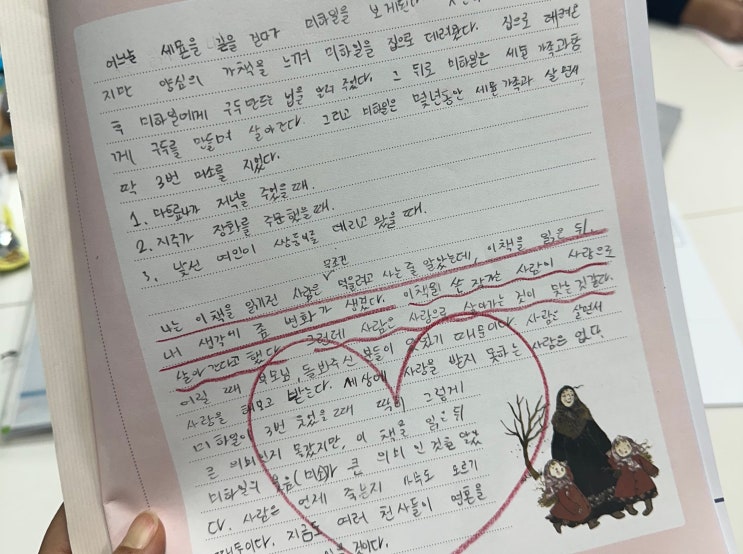 어느날 세몬을 길을 걷다가 미하일을 보게된다
지만 양심의 가책을 느껴 미하일을 집으로 데려온다. 집으로 데려온
후 미하일에게 구두만드는 법을 알려 주었다. 그 뒤로 미하일은 세몬 가족과 함
께 구두를 만들며 살아간다. 그리고 미하일은 몇년동안 세몬 가족과 살면서
딱 3번 미소를 지었다.
1. 마트료나가 저녁을 주었을 때.
2. 지주가 장화를 주문했을때.
3. 낯선 여인이 쌍둥이를 데리고 왔을 때.
나는 이 책을 읽기전 사람은 무조건 먹을려고 사는 줄 알았는데, 이책을 읽은 뒤
내 생각에 좀 변화가 생겼다. 이책의 쓴 작가는 사람이 사랑으로
살아간다고 했다. 그런데 사람은 사랑으로 살아가는 것이 맞는것 같다.
어릴 때 부모님, 돌봐주신 분들이 있기 때문이다. 사람은 살면서
사랑을 해보고 받는다. 세상에 사랑을 받지 못하는 사람은 없다.
미하일이 3번 웃었을때 딱히 그렇게
큰 의미인지 몰랐지만, 이 책을 읽은 뒤
미하일의 웃음(미소)가 큰 의미 인것을 알았
다. 사람은 언제 죽는지 아무도 모르기
때문이다. 지금도 여러 천사들이 영혼을
것이다.